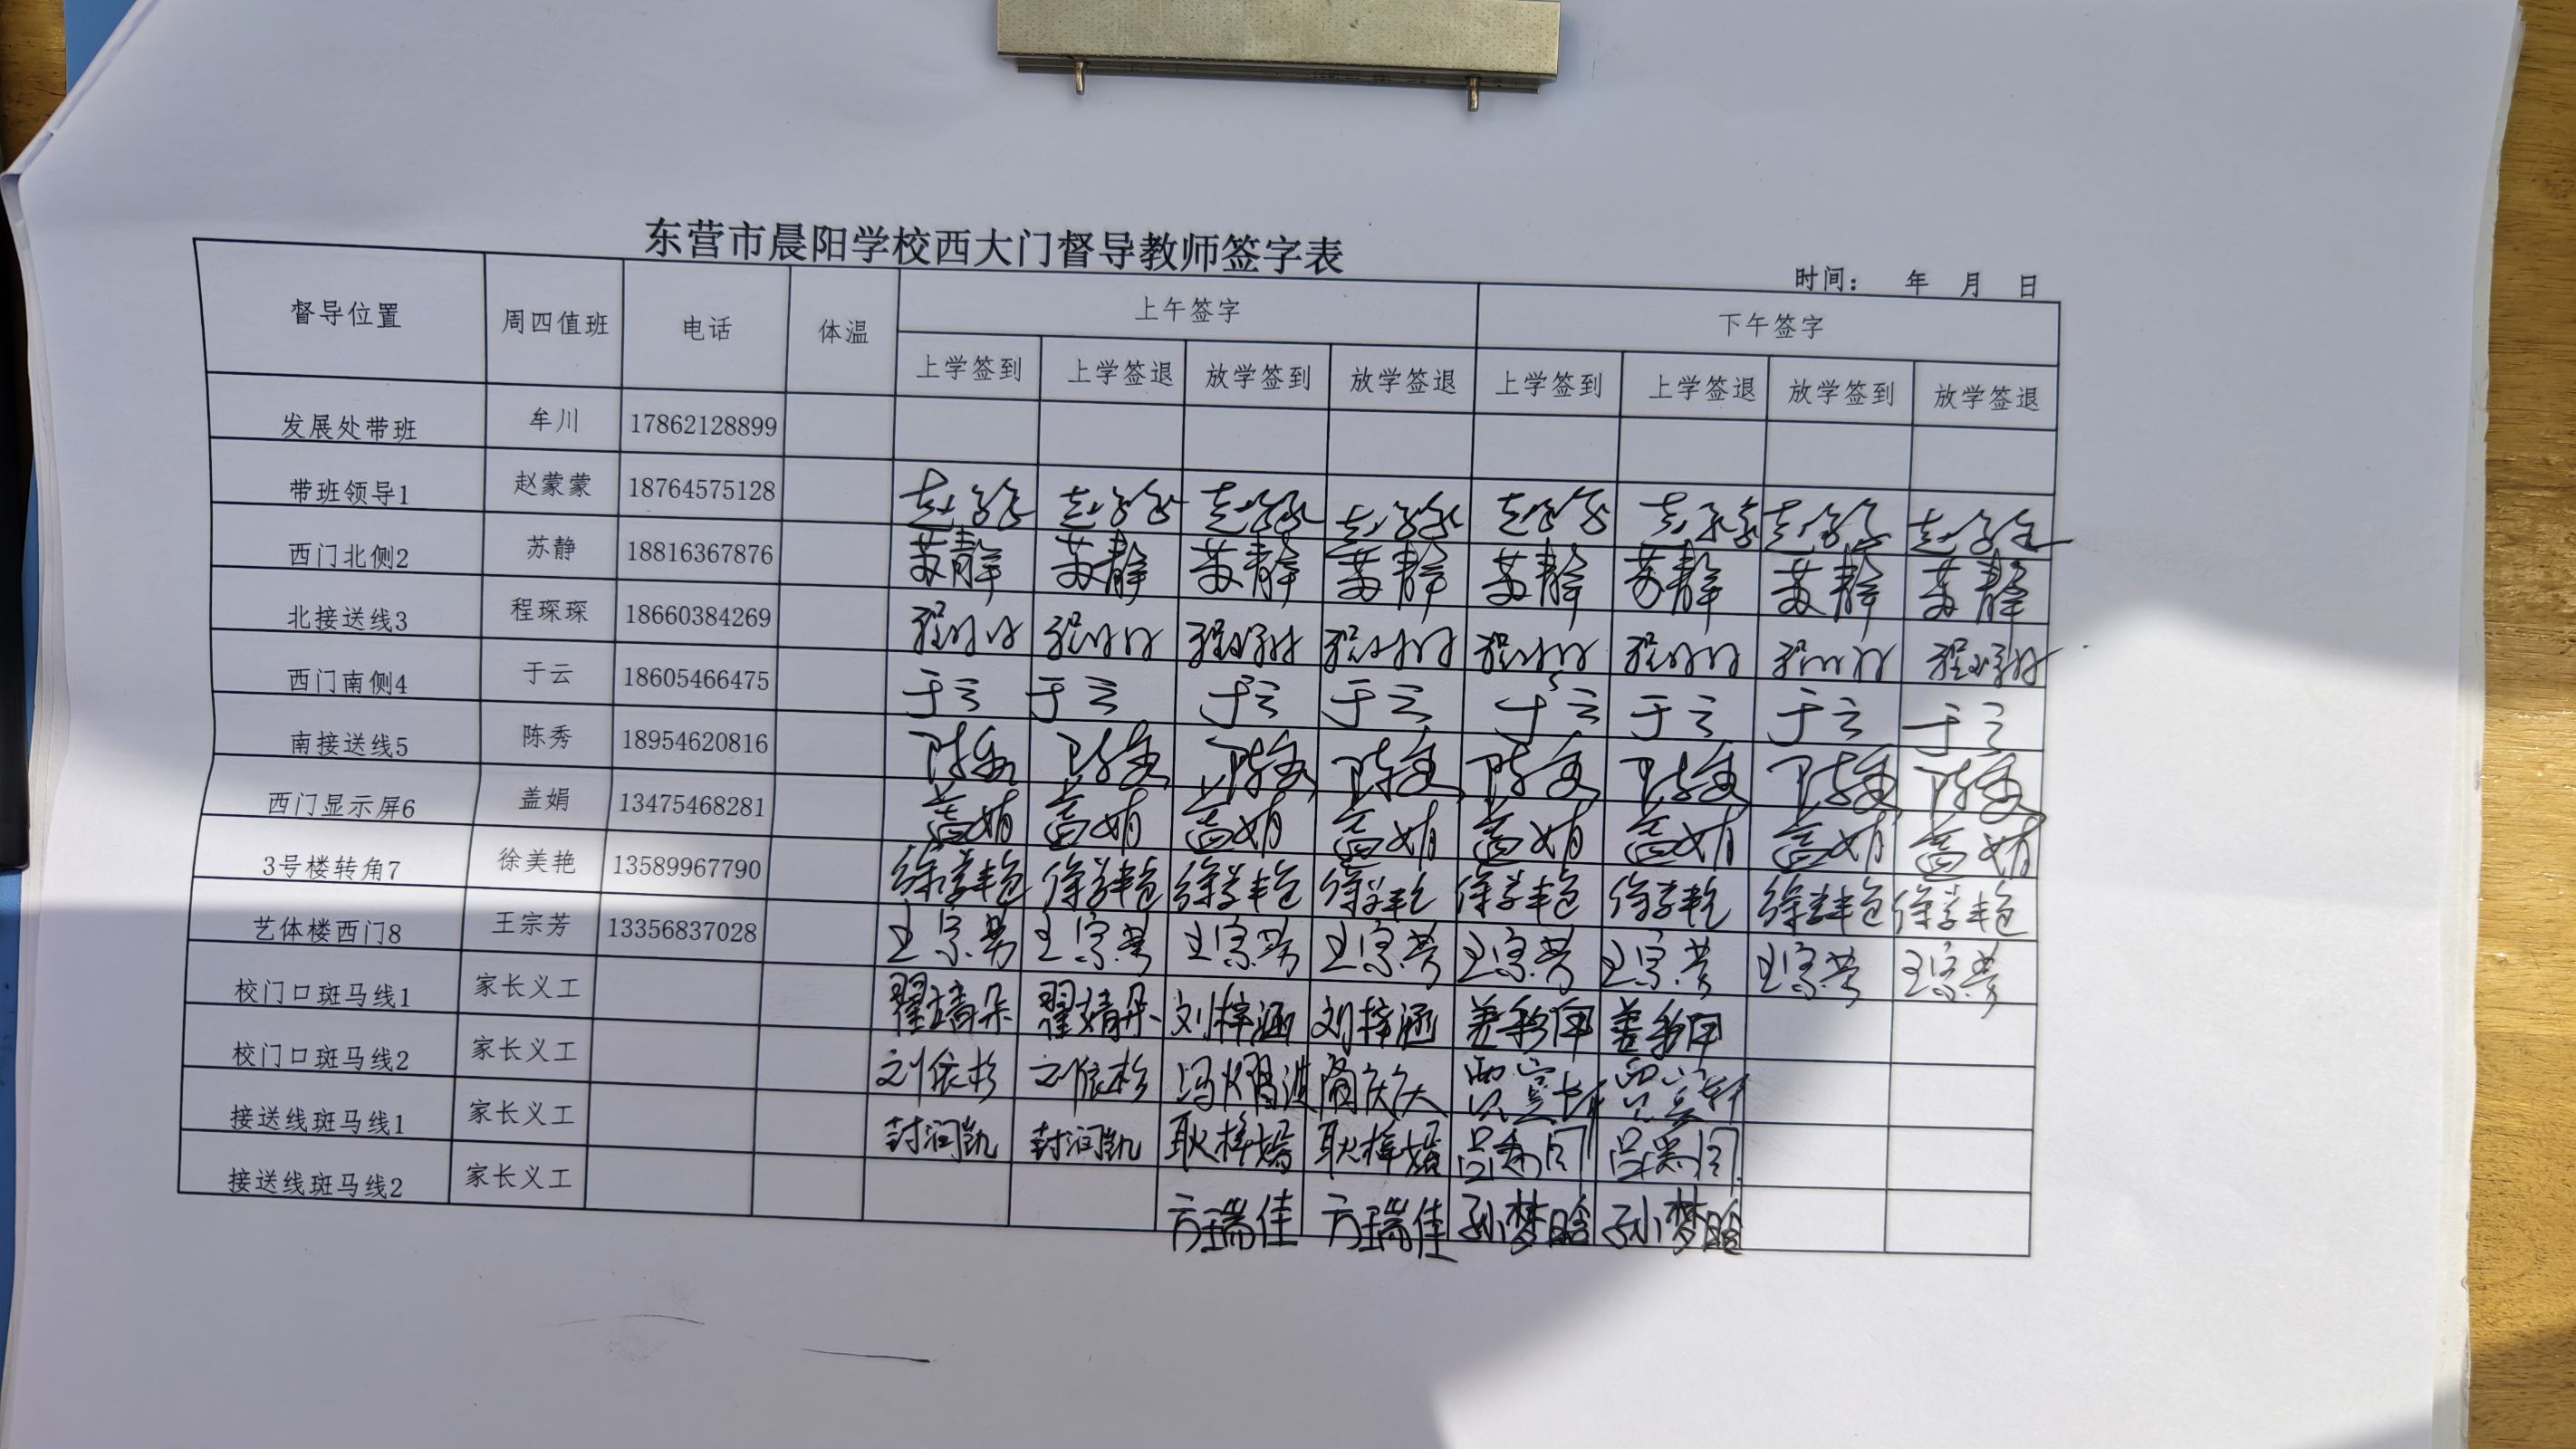 东营市晨阳学校西大门督导教师签字表
时间： 年 月 日
督导位置 周四值班 电话 体温 上午签字 下午签字
上学签到 上学签退 放学签到 放学签退 上学签到 上学签退 放学签到 放学签退
发展处带班 牟川 17862128899
带班领导1 赵蒙蒙 18764575128
西门北侧2 苏静 18816367876 苏静 苏静 苏静 苏静 苏静 苏静 苏静 苏静
北接送线3 程琛琛 18660384269
西门南侧4 于云 18605466475 于云 于云 于云 于云 于云 于云 于云 于云
南接送线5 陈秀 18954620816 陈秀 陈秀 陈秀 陈秀 陈秀 陈秀 陈秀 陈秀
西门显示屏6 盖娟 13475468281 盖娟 盖娟 盖娟 盖娟 盖娟 盖娟 盖娟 盖娟
3号楼转角7 徐美艳 13589967790 徐美艳 徐美艳 徐美艳 徐美艳 徐美艳 徐美艳 徐美艳 徐美艳
艺体楼西门8 王宗芳 13356837028 王宗芳 王宗芳 王宗芳 王宗芳 王宗芳 王宗芳 王宗芳 王宗芳
校门口斑马线1 家长义工 翟靖朵 翟靖朵 刘梓涵 刘梓涵
校门口斑马线2 家长义工 刘依杉 刘依杉
接送线斑马线1 家长义工 封润凯 封润凯 耿梓嫣 耿梓嫣
接送线斑马线2 家长义工 方瑞佳 方瑞佳 孙梦晗 孙梦晗